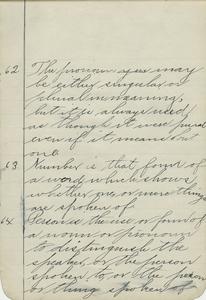 62 The pronoun you may
be either singular or
plural in meaning,
but it is always used
as though it were plural
even if it means but
one
63 Number is that form of
a word which shows
whether one or more things
are spoken of
64 Person is the use or form of
a noun or pronoun
to distinguish the
speaker, or the person
spoken to, or the person
or thing spoken of